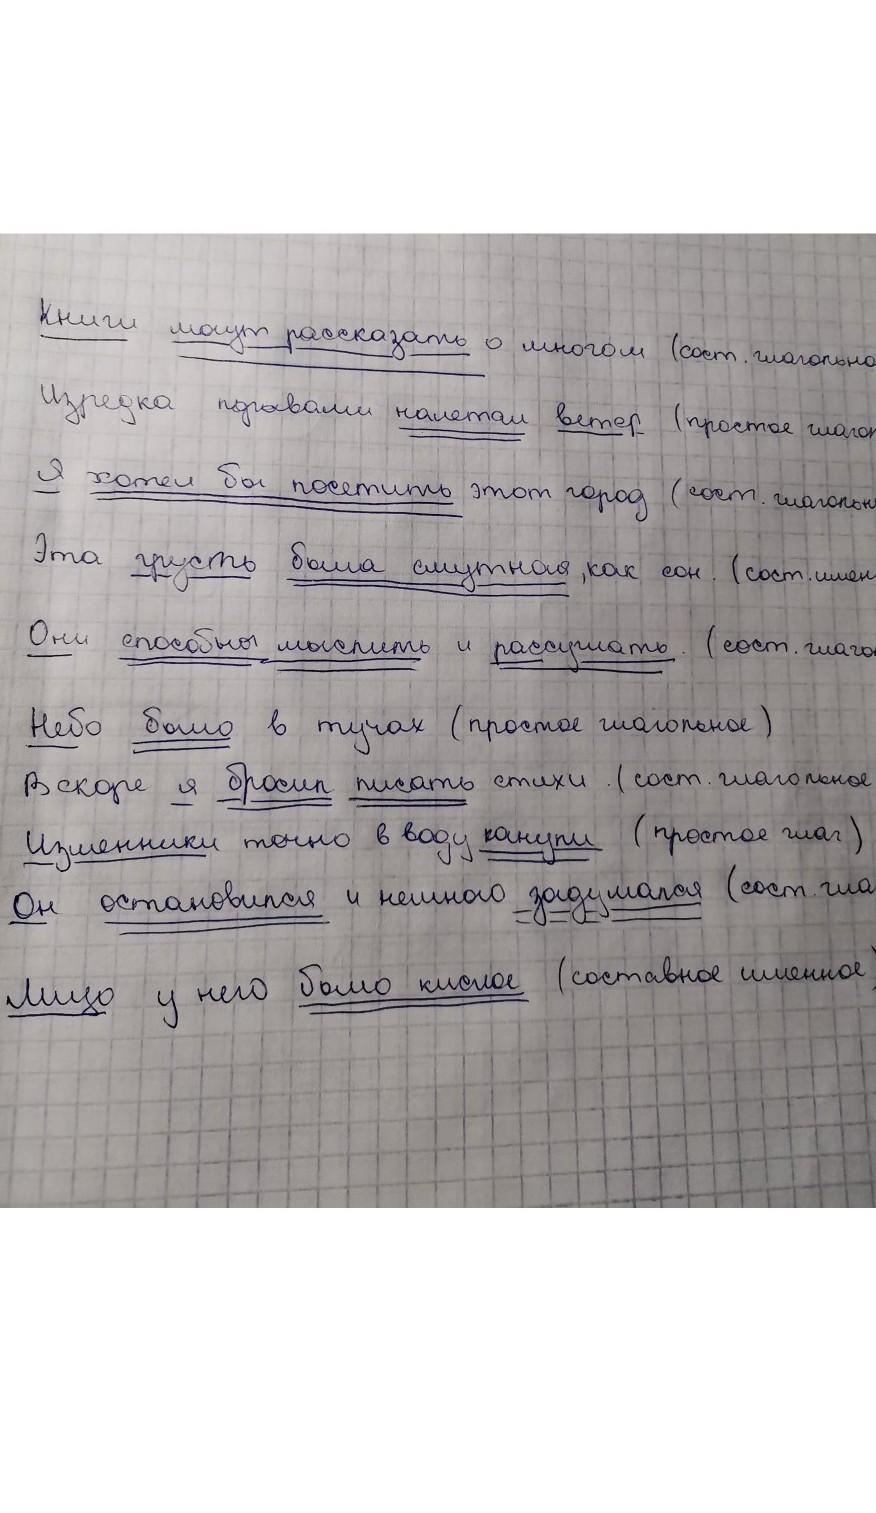 Книги могут рассказать о многом (сост. глагольно
Изредка порывами налетал ветер (простое глагол
Я хотел бы посетить этот город (сост. глагольн
Эта грусть была смутная, как сон. (сост. имен
Они способны мыслить и рассуждать. (сост. глаго
Небо было в тучах (простое глагольное)
Вскоре я бросил писать стихи. (сост. глагольное
Изменники точно в воду канули (простое глаг)
Он остановился и немного задумался (сост. гла
Лицо у него было кислое (составное именное)